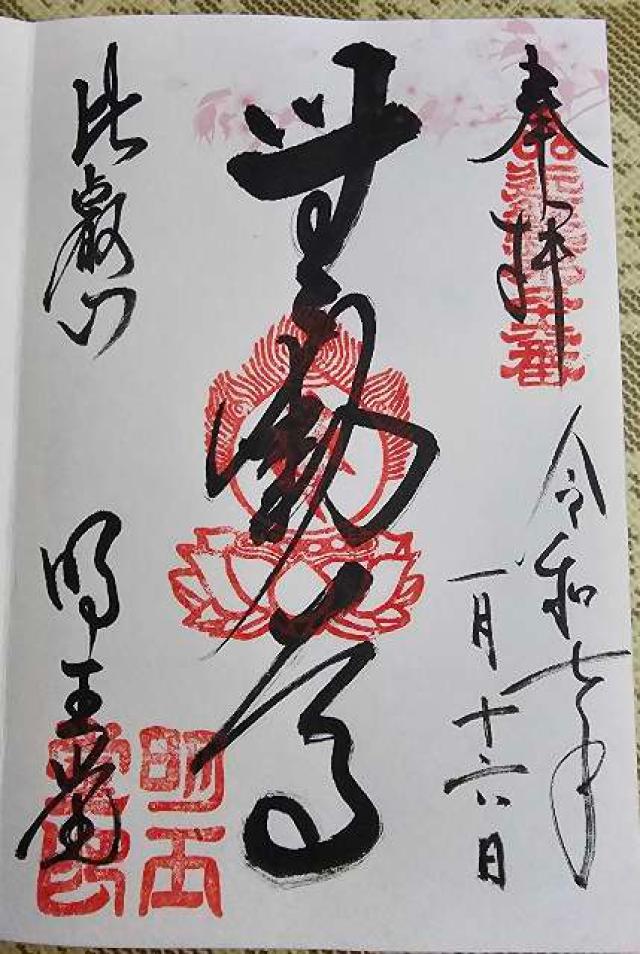 奉拝
令和七年
一月十六日
無動尊
比叡山
明王堂
明王
堂印